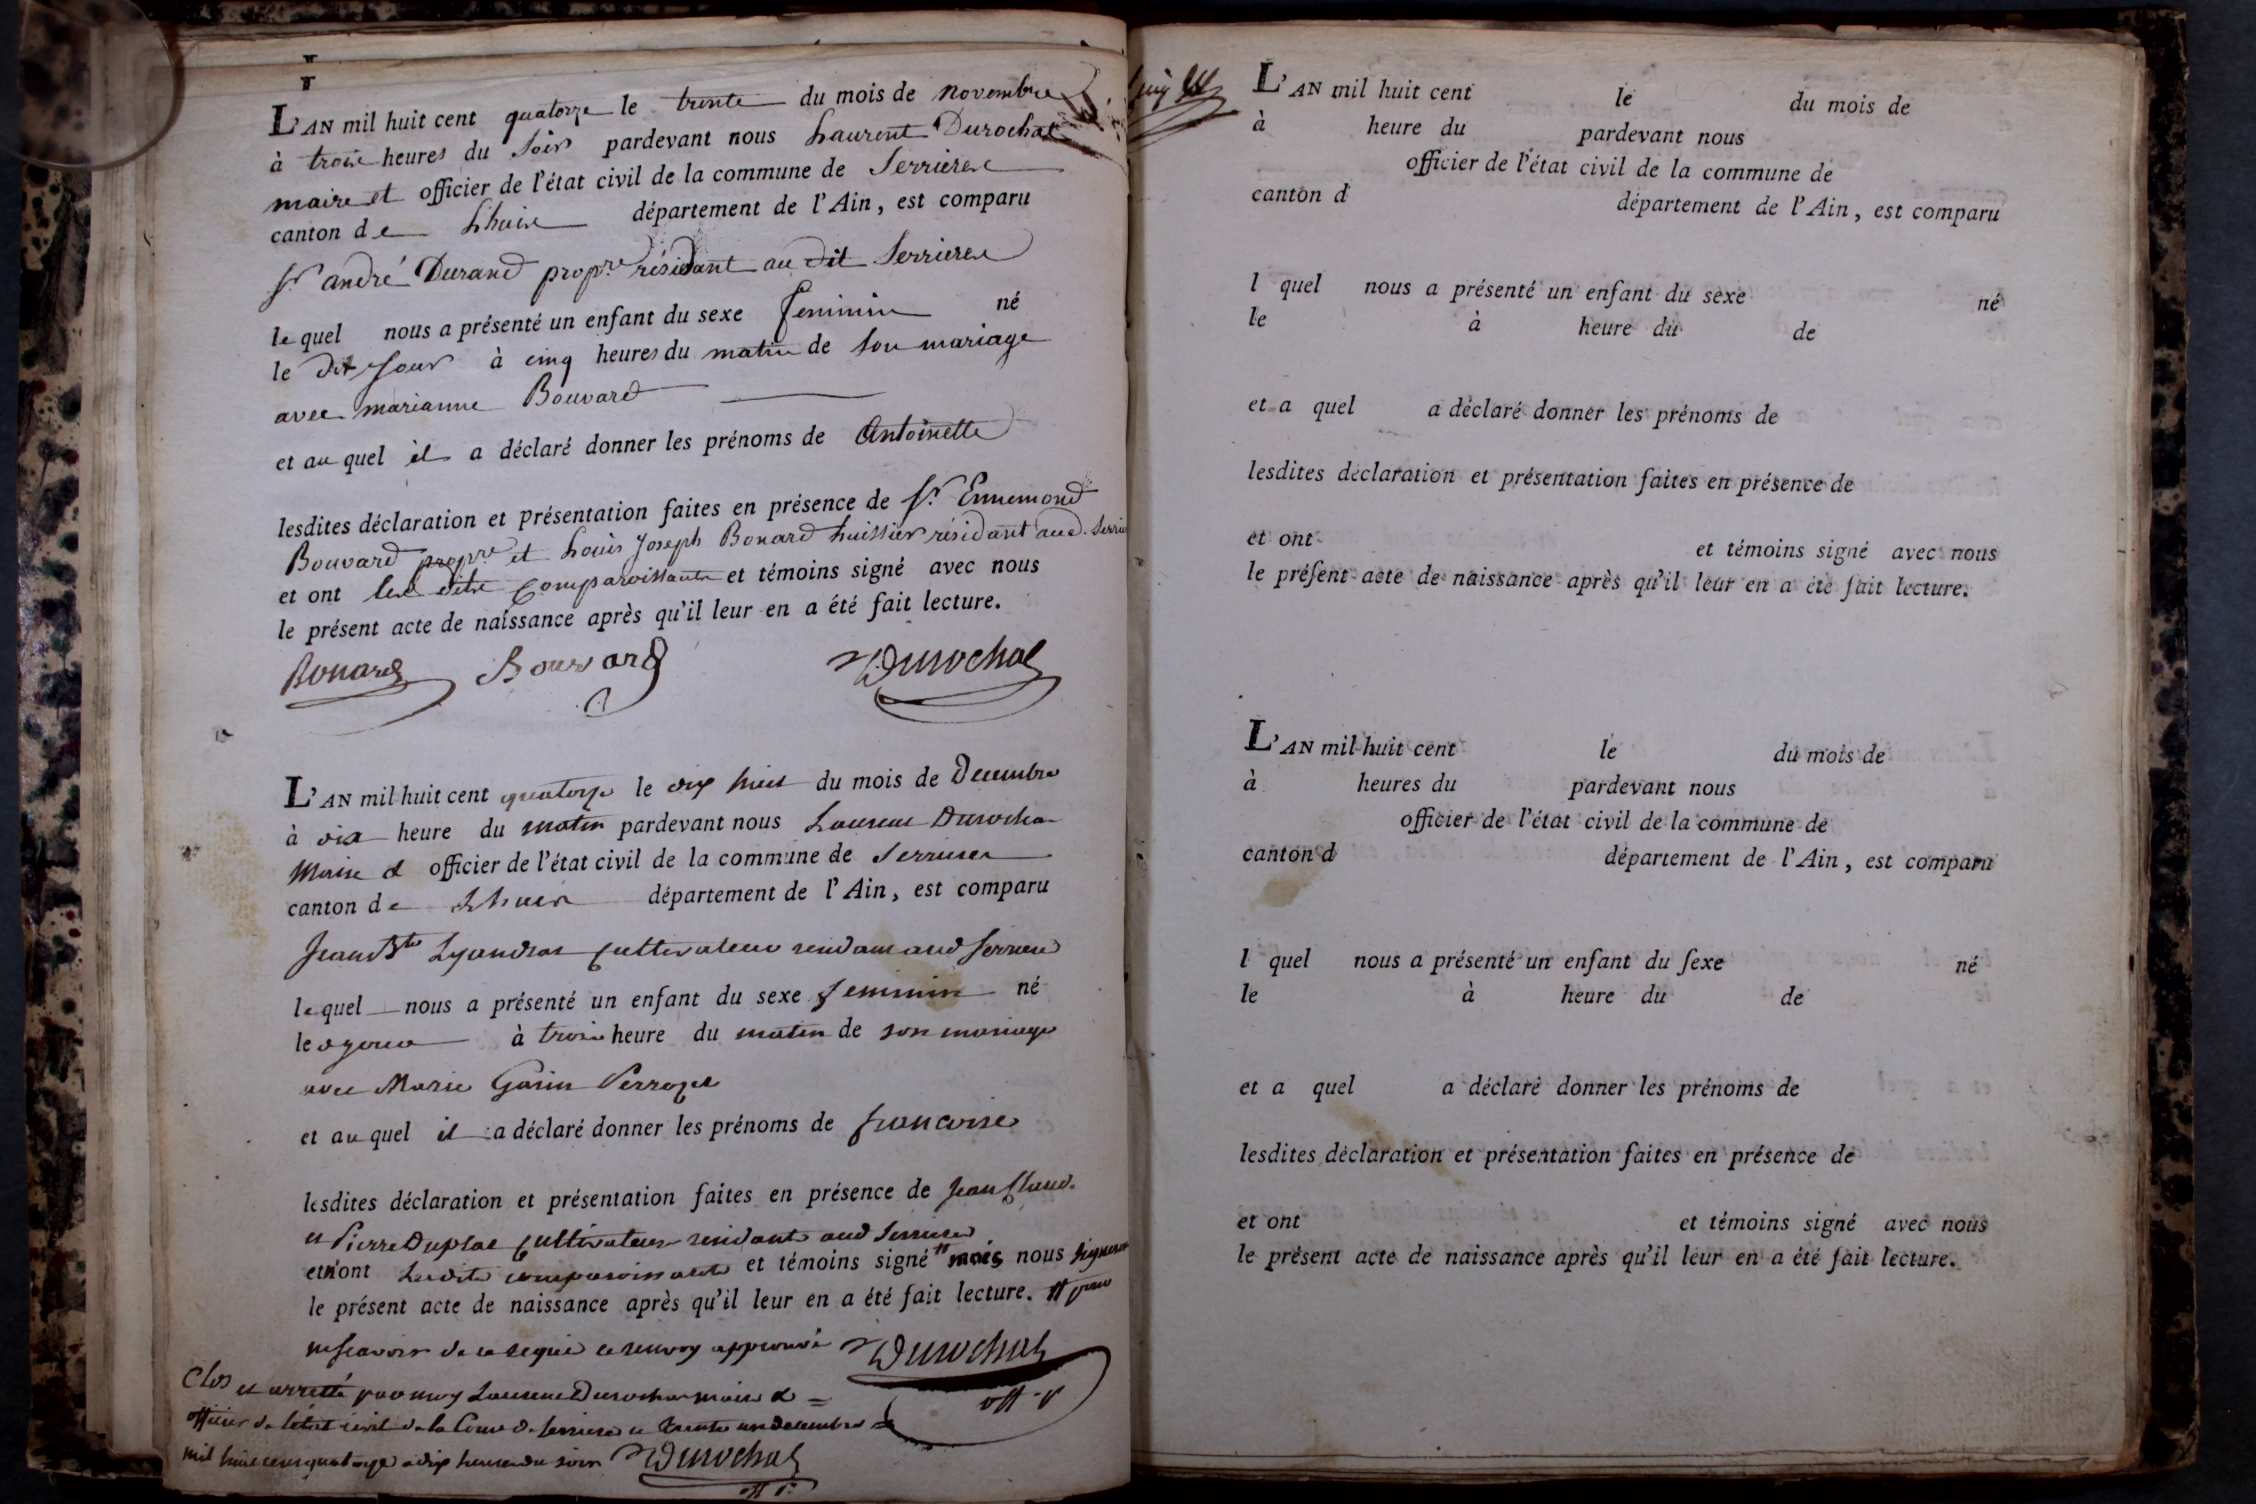 L'AN mil huit cent quatorze le trente du mois de novembre
à trois heures du soir pardevant nous Laurent Durochat
maire et officier de l'état civil de la commune de Serrieres
canton de Lhuis département de l'Ain, est comparu
Sr. andré Durand propre. résidant au dit Serrieres
le quel nous a présenté un enfant du sexe feminin né
le dit jour à cinq heures du matin de son mariage
avec marianne Bouvard
et au quel il a déclaré donner les prénoms de Antoinette
lesdites déclaration et présentation faites en présence de Sr. Ennemond
Bouvard propre. et Louis Joseph Bonard huissier résidant aud. Serrie
et ont les dits Comparoissants et témoins signé avec nous
le présent acte de naissance après qu'il leur en a été fait lecture.
Bonard Bouvard Durochat
L'AN mil huit cent quatorze le dix huit du mois de Decembre
à dix heure du matin pardevant nous Laurent Durochat
Maire et officier de l'état civil de la commune de Serrieres
canton de Lhuis département de l'Ain, est comparu
Jean Bte Lyaudrat Cultivateur residant aud Serriere
le quel nous a présenté un enfant du sexe feminin né
le à trois heure du matin de son mariage
avec Marie Garin
et au quel il a déclaré donner les prénoms de francoise
lesdites déclaration et présentation faites en présence de Jean Claude
et Pierre Duplat Cultivateurs residants aud Serrieres
et n'ont lesdits comparoissants et témoins signé mais nous
le présent acte de naissance après qu'il leur en a été fait lecture. # pour
ne scavoir de ce requis ce renvoy approuvé Durochat
Clos et arretté par moy Laurent Durochat maire et = off. p.
officier de l'état civil de la Comne de Serrieres ce trente un decembre =
mil huit cent quatorze a dix heures du soir Durochat
off. p.
L'AN mil huit cent le du mois de
à heure du pardevant nous
officier de l'état civil de la commune de
canton d département de l'Ain, est comparu
l quel nous a présenté un enfant du sexe né
le à heure du de
et a quel a déclaré donner les prénoms de
lesdites déclaration et présentation faites en présence de
et ont et témoins signé avec nous
le préſent acte de naissance après qu'il leur en a été fait lecture.
L'AN mil huit cent le du mois de
à heures du pardevant nous
officier de l'état civil de la commune de
canton d département de l'Ain, est comparu
l quel nous a présenté un enfant du ſexe né
le à heure du de
et a quel a déclaré donner les prénoms de
lesdites déclaration et présentation faites en présence de
et ont et témoins signé avec nous
le présent acte de naissance après qu'il leur en a été fait lecture.